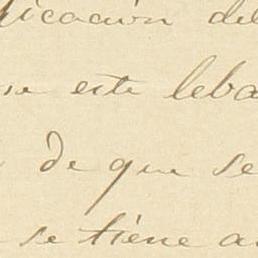 icacion del
este leba
de que se
se tiene a